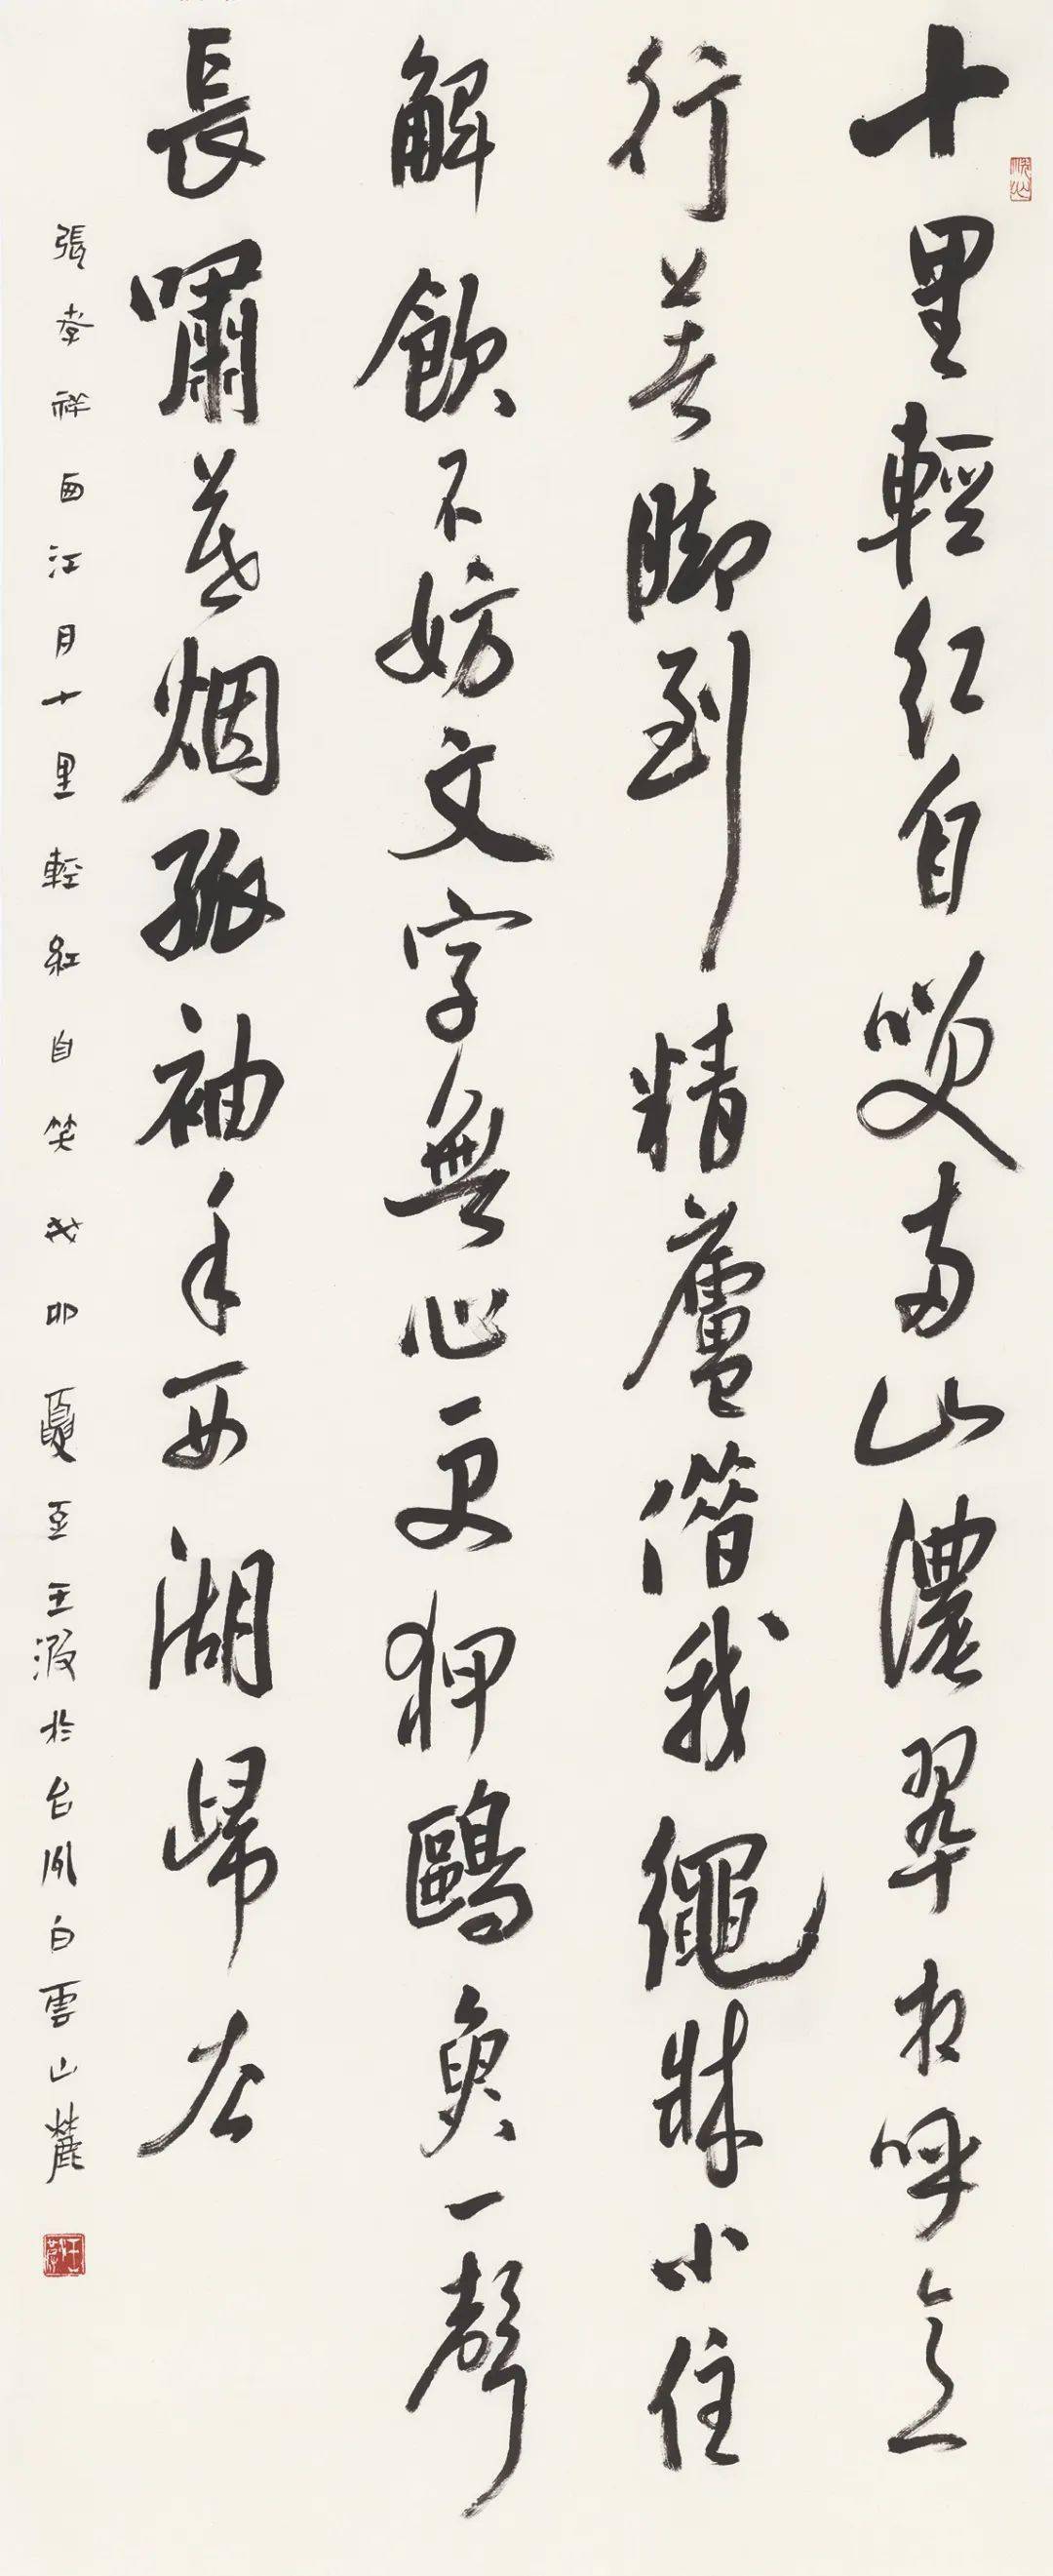 十里輕紅自咲兩山濃翠相呼意
行著脚到精廬借我繩牀小住
解飲不妨文字無心更狎鷗魚一聲
長嘯暮烟孤袖手西湖歸去
張孝祥西江月十里輕紅自笑 夏至王 於台州白雲山麓